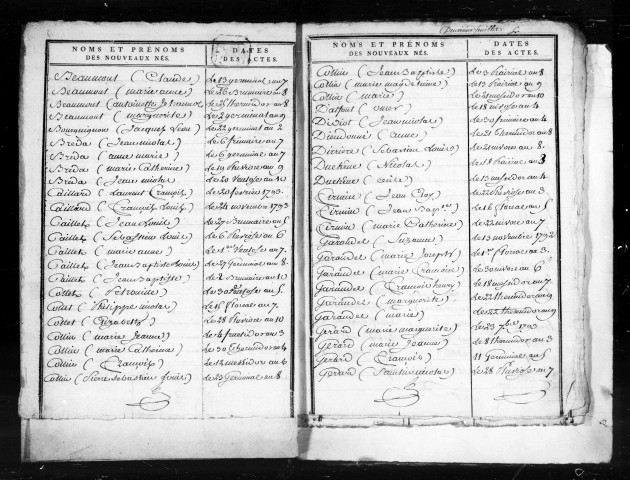 NOMS ET PRÉNOMS DES NOUVEAUX NÉS. DATES DES ACTES.
Beaumont (Claude) le 13 germinal an 7
Beaumont (marie anne) le 26 Brumaire an 8
Beaumont (antoinette) le 25 thermidor an 8
Beaumont (marguerite) le 2 germinal an 9
Bourguignon (Jacques Leon) le 22 germinal an 2
Breda (Jean nicolas) le 6 frimaire an 7
Breda (anne marie) le 6 germinal an 7
Breda (marie Catherine) le 19 Nivose an 9
Breda (Jean nicolas) le 28 Ventose an 10
Caillard (Laurent François) le 20 fevrier 1793
Caillard (François Louis) le 21 novembre 1793
Caillet (Jean Louis) le 27 Brumaire an 5
Caillet (Sebastien Louis) le 6 Nivose an 6
Caillet (marie anne) le 1er Ventose an 7
Caillet (Jean Baptiste Louis) le 27 germinal an 8
Caillet (Jean Baptiste) le 2 Brumaire an 10
Collet (Petronille) le 30 Ventose an 5
Collet (Philippe nicolas) le 18 floreal an 7
Collet (Elizabeth) le 28 Nivose an 10
Collin (marie Jeanne) le 4 fructidor an 3
Collin (marie Catherine) le 30 thermidor an 4
Collin (François) le 12 messidor an 6
Collin (Pierre Sebastien) le 23 Germinal an 8
Deuxieme feuillet
NOMS ET PRÉNOMS DES NOUVEAUX NÉS. DATES DES ACTES.
Collin (Jean Baptiste) le 3 Prairial an 8
Collin (marie magdelaine) le 13 Prairial an 9
Collin (marie) le 21 messidor an 10
(omer) le 18 nivose an 4
Didiot (Jean nicolas) le 30 frimaire an 4
Dieudonné (anne) le 21 thermidor an 8
(Sebastien Louis) le 25 nivose an 8
Duchêne (Nicolas) le 18 Prairial an 3
Duchêne (cecile) le 13 messidor an 4
Firmin (Jean Eloy) le 22 Nivose an 3
Firmin (Jean Bapte) le 16 floreal an 5
Firmin (marie Catherine) le 22 nivose an 7
Garaudel (Suzanne) le 13 novembre 1792
Garaudel (marie Joseph) le 1er floreal an 3
Garaudel (marie Françoise) le 30 nivose an 6
Garaudel (François henry) le 18 messidor an 7
Garaudel (marguerite) le 22 thermidor an 9
Garaudel (marie) le 28 thermidor an 9
Gerard (marie marguerite) le 23 7bre 1793
Gerard (marie Jeanne) le 8 thermidor an 3
Gerard (François) le 11 Germinal an 5
Gerard (Stanislas nicolas) le 28 Nivose an 7